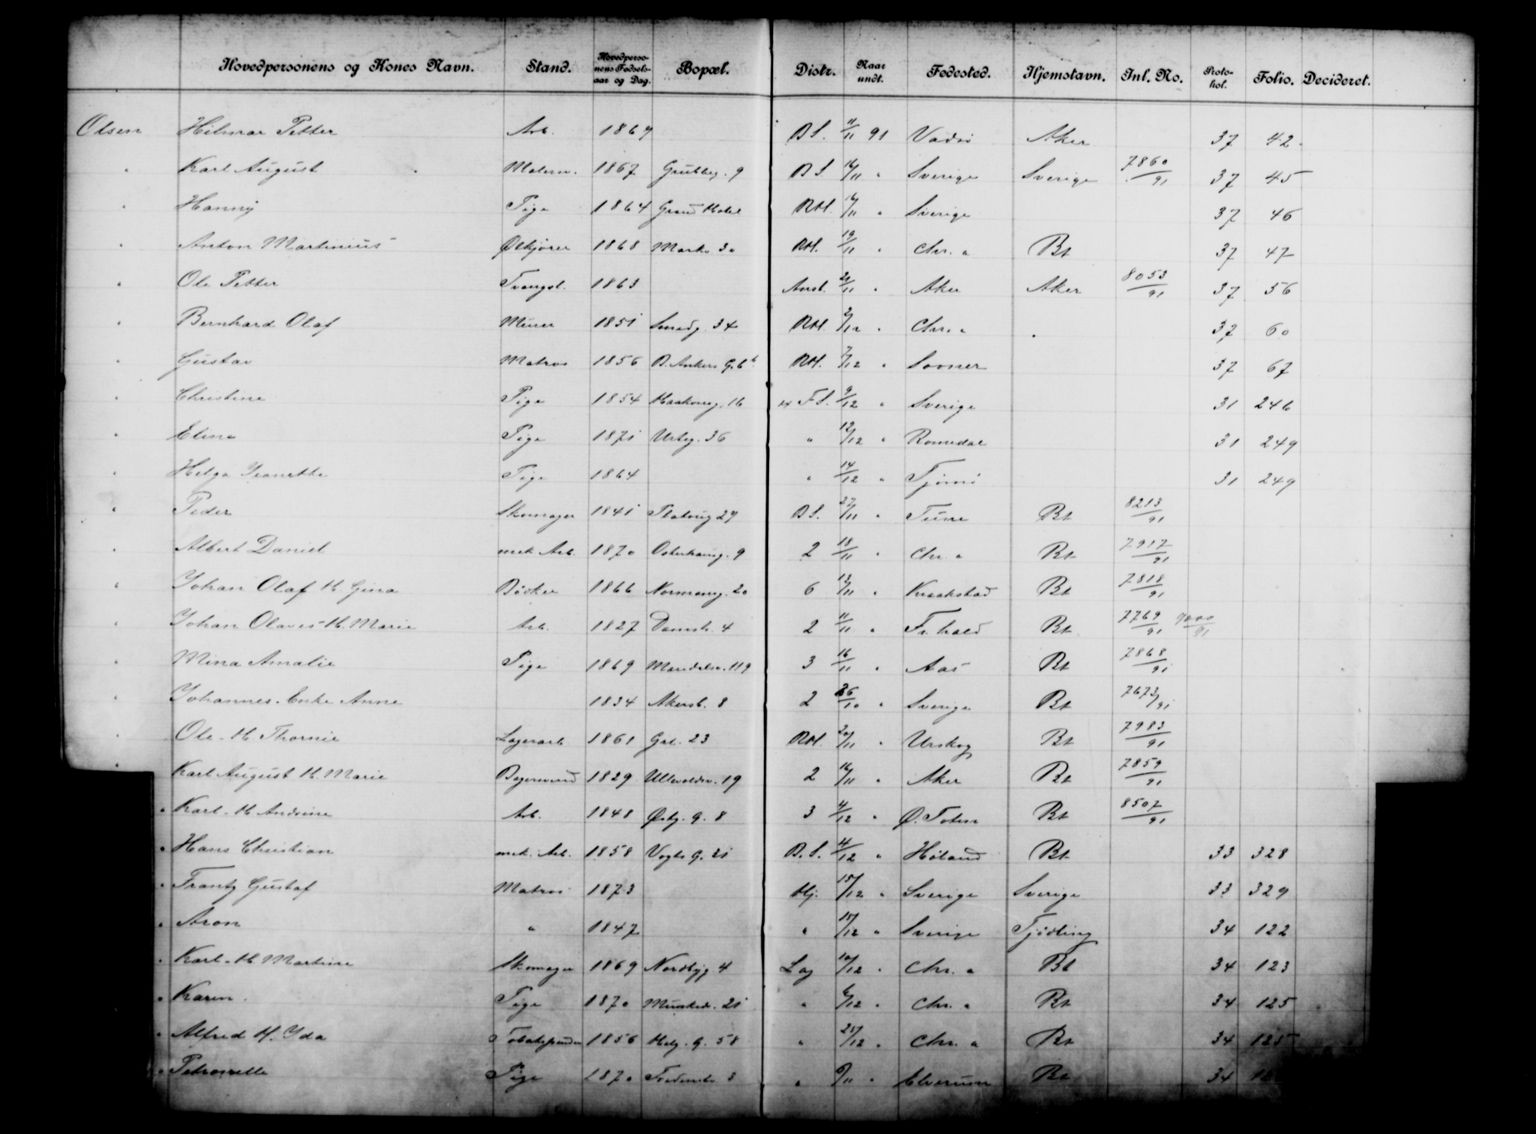 Hovedpersonens og Kones Navn. Stand. Hovedpersonens Fødselsaar og Dag. Bopæl. Distr. Naar undt. Fødested. Hjemstavn. Inl. No. Protokol. Folio. Decideret.
Olsen Hilmar Petter Arb. 1867 B S. 11/11 91 Vadsö Aker 37 42
" Karl August 1867 9 B S 16/11 " Sverige Sverige 7860/91 37 45
" Hanny Pige 1864 Grand Hotel RM. 17/11 " Sverige 37 46
" Anton Martinius Ølkjører 1868 Markv 30 RM. 19/11 " Chr. a Bt 37 47
" Ole Petter Tvangst. 1863 Anst. 21/11 " Aker Aker 8053/91 37 56
" Bernhard Olaf Murer 1851 Smedg. 34 RM 2/12 " Chr. a 37 60
" Gustav Matros 1856 B. Ankers G. 6 b RM. 7/12 " 37 67
" Christine Pige 1854 Haakonsg. 16 F S. 9/12 " Sverige 31 246
" Eline Pige 1871 Urteg. 36 " 12/12 " Romedal 31 249
" Helga Jeanette Pige 1864 " 14/12 " Tjömö 31 249
" Peder Skomager 1841 27 B S. 27/11 " Tune Bt 8213/91
" Albert Daniel mek Arb. 1870 Osterhausg. 9 2 18/11 " Chr. a Bt 7917/91
" Johan Olaf H. Gina Bödker 1866 Normanng. 20 6 13/11 " Kraakstad Bt 7818/91
" Johan Olaves H. Marie Arb. 1827 Damstr. 4 2 11/11 " Fr. hald Bt 7769/91 9000/91
" Mina Amalie Pige 1869 Maridalsv. 119 3 16/11 " Aas Bt 7868/91
" Johannes. Enke Anne 1834 Akersb. 8 2 26/10 " Sverige Bt 7673/91
" Ole H. Thornie Lagerarb 1861 Grl. 23 RM. 20/11 " Urskog Bt 7983/91
" Karl August H. Marie 1829 Ullevoldsv. 19 2 16/11 " Aker Bt 7859/91
" Karl H. Andrine Arb. 1848 Østg. G. 8 3 4/12 " Ø. Toten Bt 8507/91
" Hans Christian mek. Arb. 1858 Vogts G. 21 B. S. 4/12 " Höland Bt 33 328
" Frantz Gustaf Matros 1873 Hj. 15/12 " Sverige Sverige 33 329
" Aron " 1847 " 15/12 " Sverige Tjödling 34 122
" Karl H. Martine Skomager 1869 Nordbyg 4 Lag 10/12 " Chr. a Bt 34 123
" Karen. Pige 1870 Munked. 21 " 6/12 " Chr. a Bt 34 125
" Alfred H. Yda 1856 Helg. G. 58 " 21/12 " Chr. a Bt 34 125
" Petronelle Pige 1870 3 " 9/11 " Elverum Bt 34